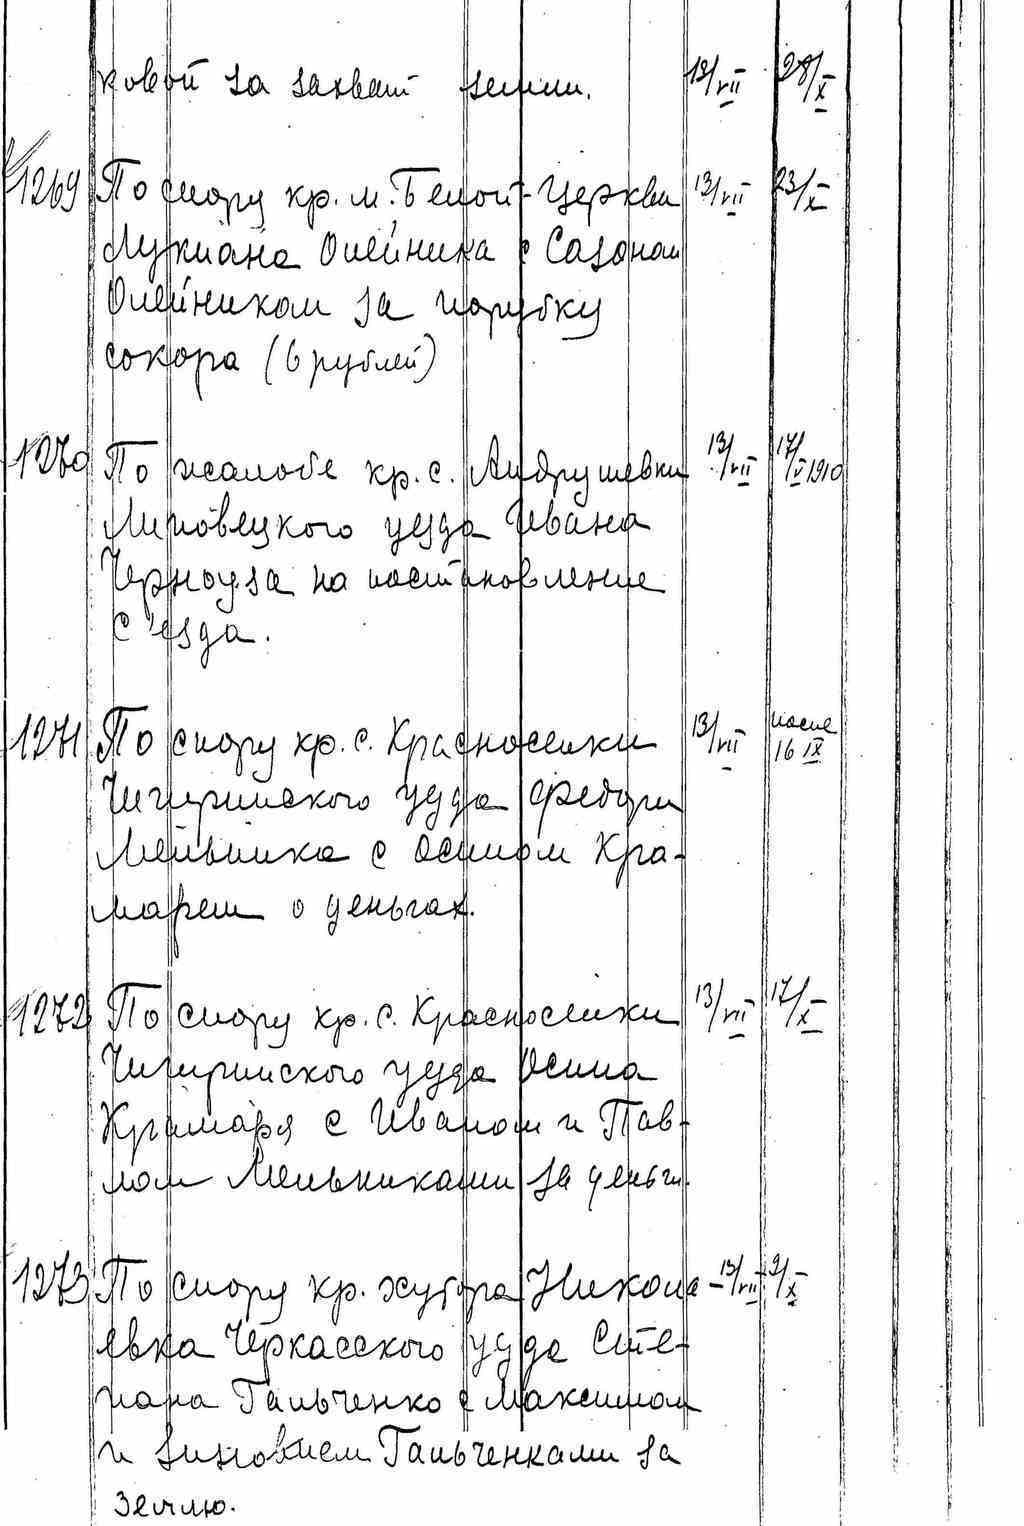 ковой за захват земли. 12/VII 28/X
1269 По спору кр. м. Белой-Церкви 13/VII 23/X
Лукиана Олейника с Сазоном
Олейником за порубку
сокора (6 рублей)
1270 По жалобе кр. с. Андрушевки 13/VII 17/V 1910
Липовецкого уезда Ивана
Черноуза на постановление
С'езда.
1271 По спору кр. с. Красноселки 13/VII после 16 IX
Чигиринского уезда Федора
Мельника с Осипом Кра-
марем о деньгах.
1272 По спору кр. с. Красноселки 13/VII 17/X
Чигиринского уезда Осипа
Крамаря с Иваном и Пав-
лом Мельниками за деньги.
1273 По спору кр. хутора Никола- 13/VII 9/X
евка Черкасского уезда Сте-
пана Гальченко с Максимом
и Зиновием Гальченками за
землю.